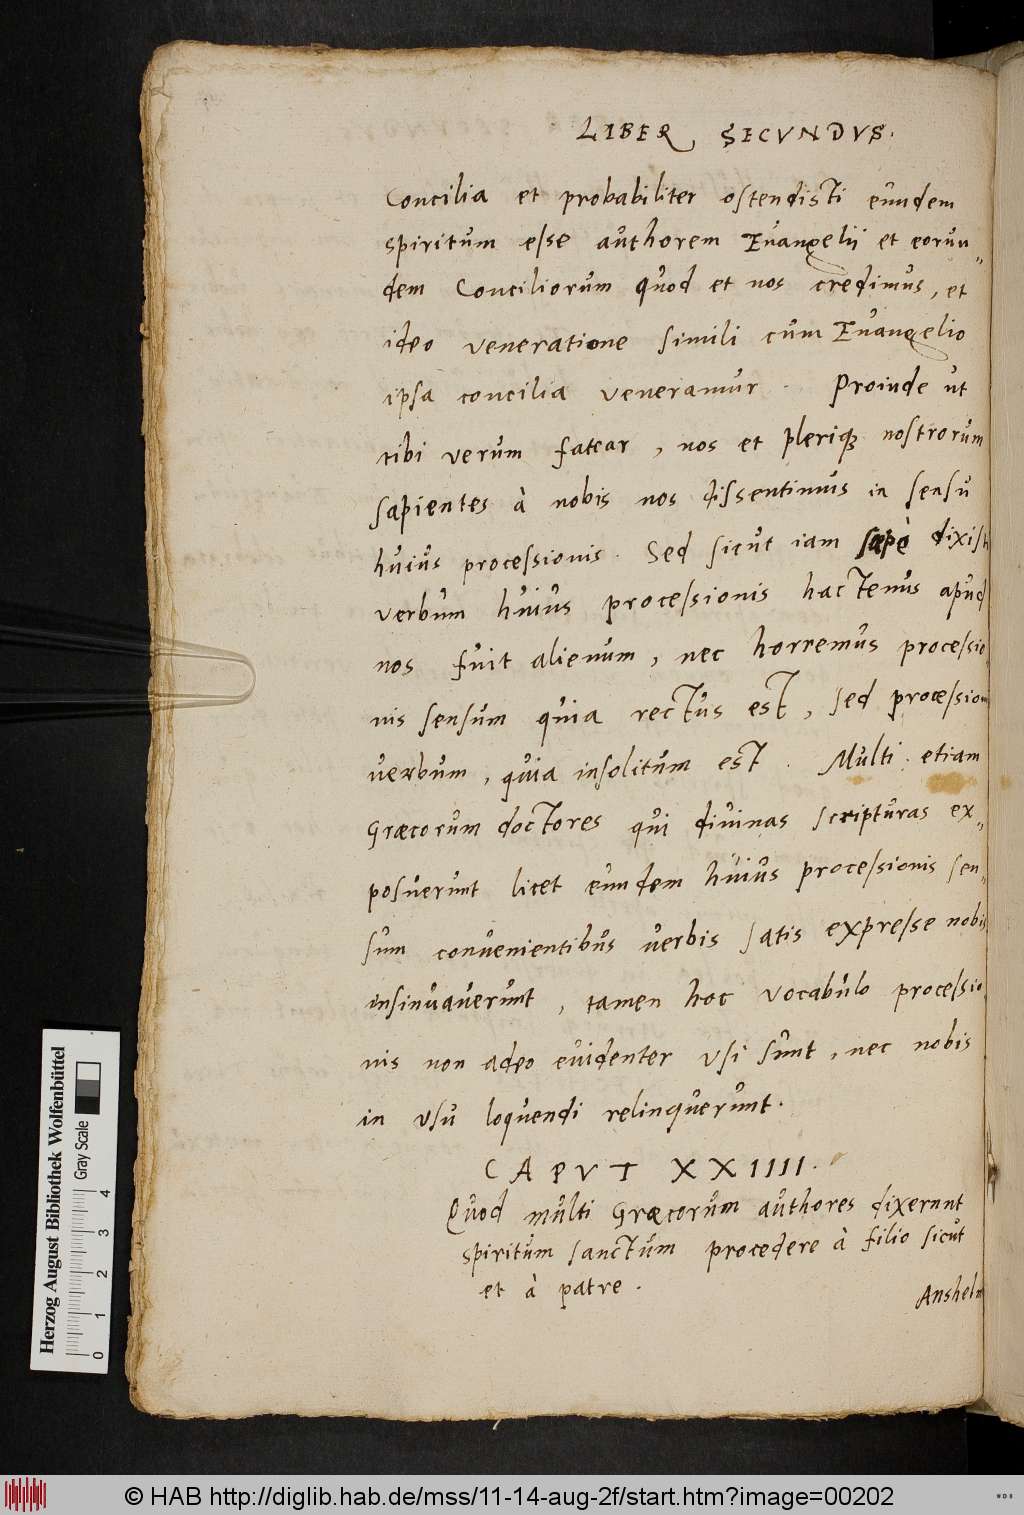 LIBER SECVNDVS.
Concilia et probabiliter ostendisti eundem
spiritum esse authorem Euangelii et eorun„
dem Conciliorum quod et nos credimus, et
ideo veneratione simili cum Euangelio
ipsa concilia veneramur. Proinde ut
tibi verum fatear, nos et pleriq; nostrorum
sapientes à nobis nos dissentimus in sensu
huius processionis. Sed sicut iam sæpè dixisti
verbum huius processionis hactenus apud
nos fuit alienum, nec horremus processio
nis sensum quia rectus est, sed procession
verbum, quia insolitum est. Multi etiam
Græcorum doctores qui diuinas scripturas ex„
posuerunt licet eundem huius processionis sen„
sum convenientibus verbis satis expresse nobis
insinuauerunt, tamen hoc vocabulo processio
nis non adeo euidenter usi sunt, nec nobis
in usu loquendi relinquerunt.
CAPVT XXIIII.
Quod multi Græcorum authores dixerunt
spiritum sanctum procedere à filio sicut
et à patre.
Anshelm
Herzog August Bibliothek Wolfenbüttel
Gray Scale
0 1 2 3 4
© HAB http://diglib.hab.de/mss/11-14-aug-2f/start.htm?image=00202